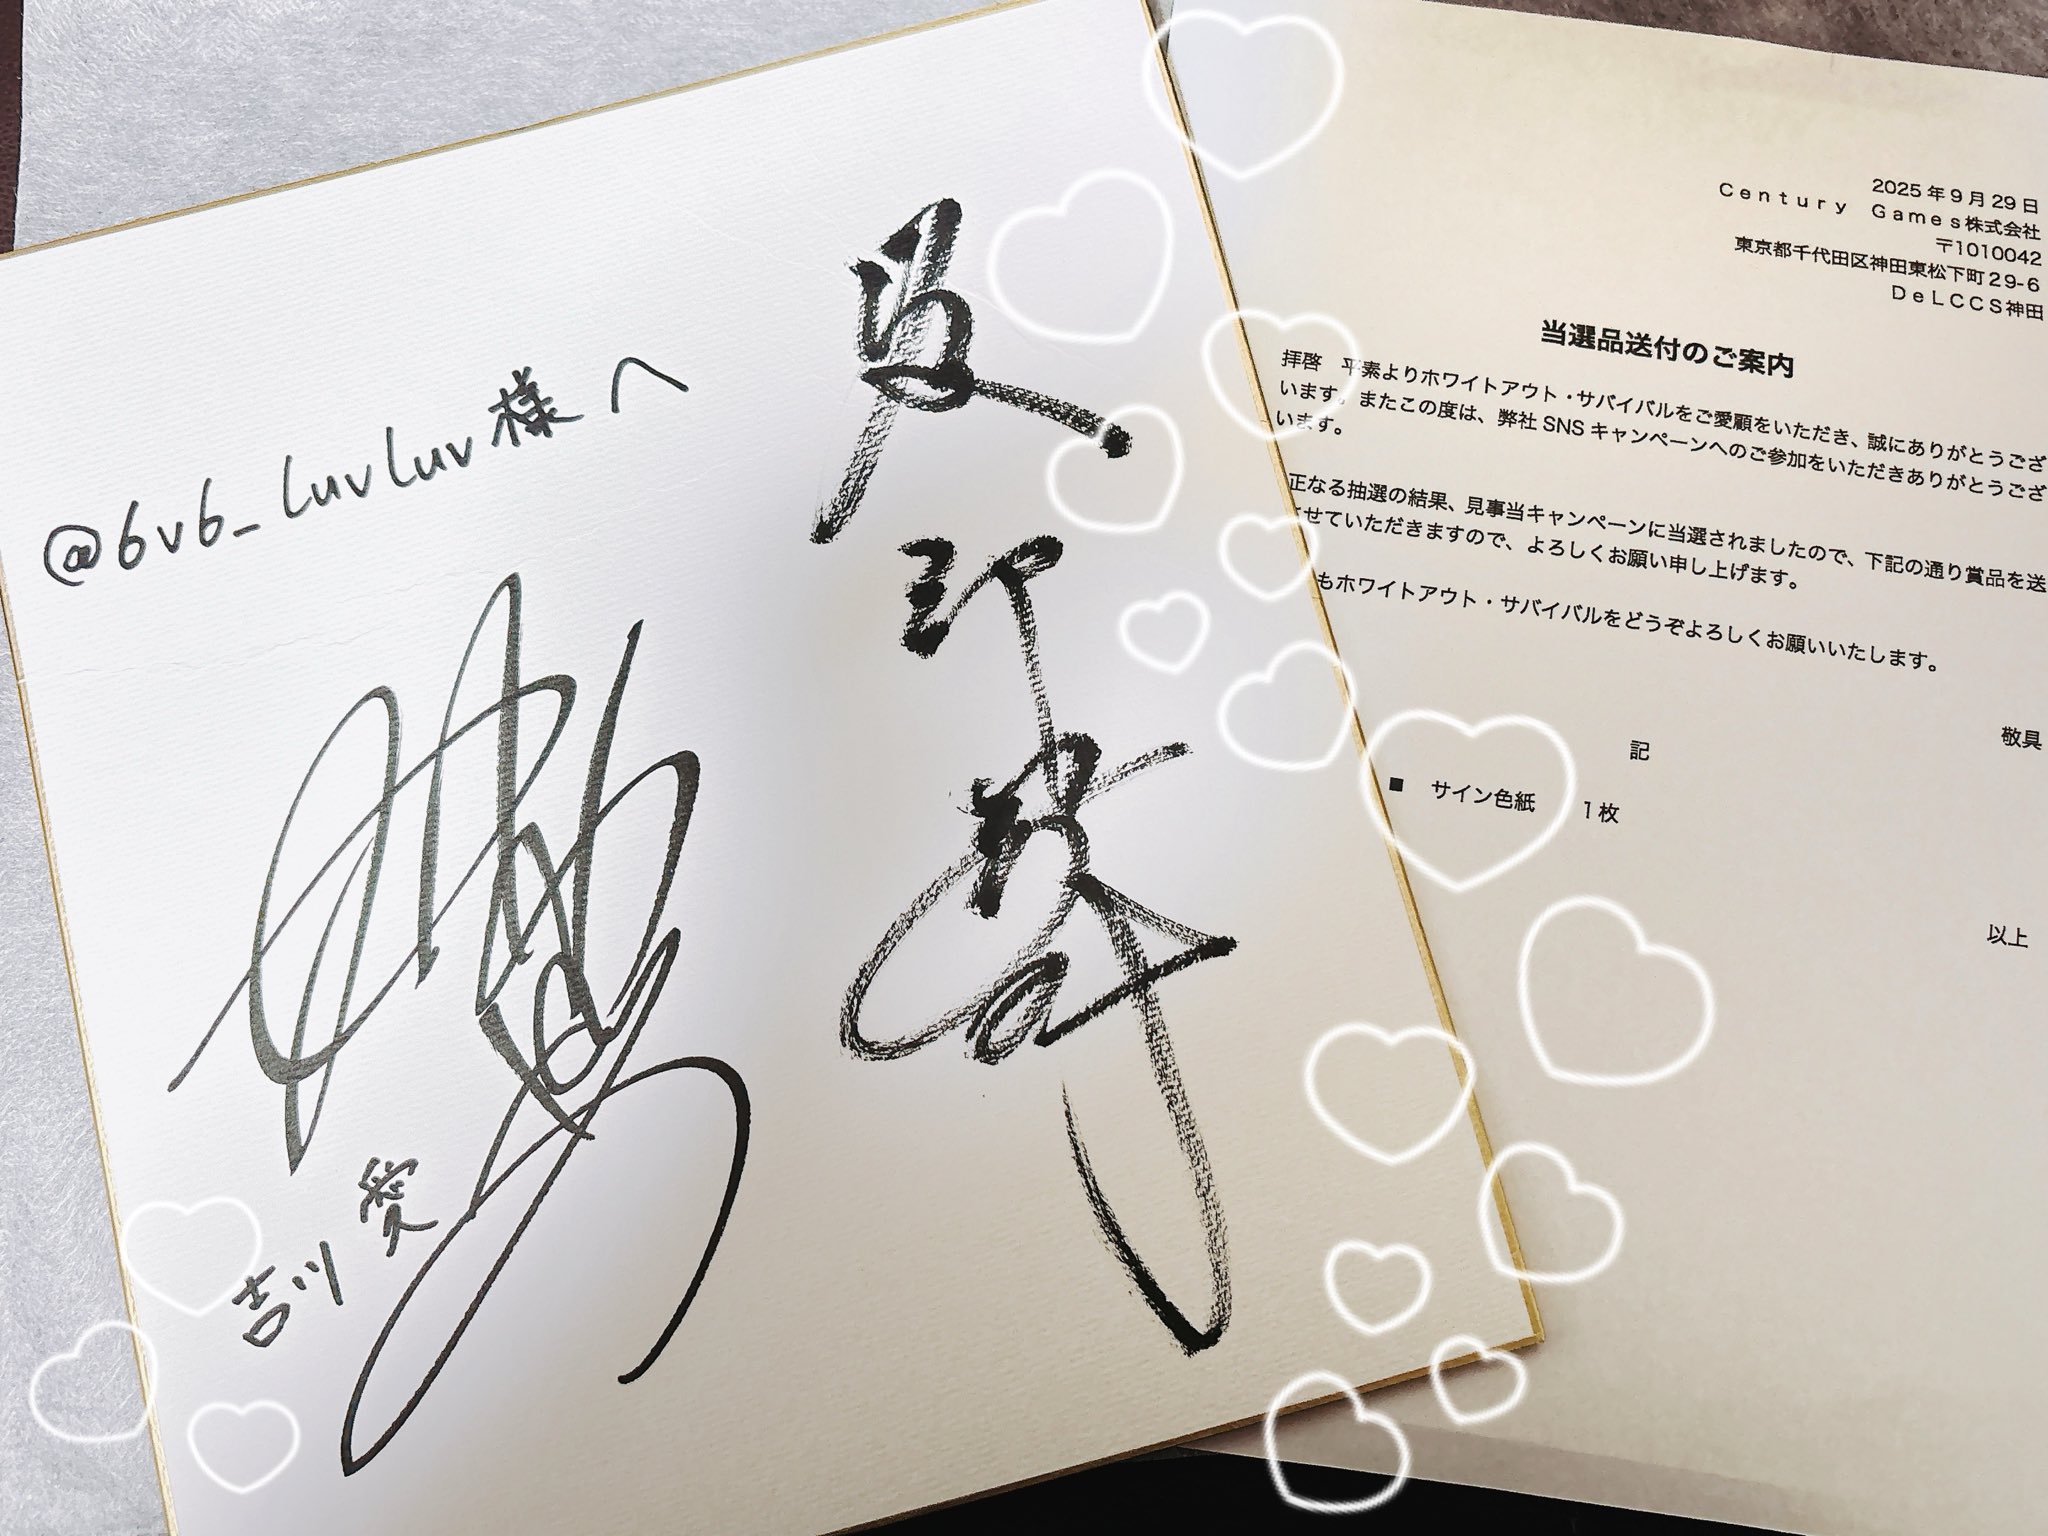 @6v6_luvluv様へ
吉川 愛
2025年9月29日
Century Games株式会社
〒1010042
東京都千代田区神田東松下町29-6
DeLCCS神田
当選品送付のご案内
拝啓 平素よりホワイトアウト・サバイバルをご愛顧をいただき、誠にありがとうござ
います。またこの度は、弊社SNSキャンペーンへのご参加をいただきありがとうござ
います。
正なる抽選の結果、見事当キャンペーンに当選されましたので、下記の通り賞品を送
させていただきますので、よろしくお願い申し上げます。
もホワイトアウト・サバイバルをどうぞよろしくお願いいたします。
敬具
記
■ サイン色紙 1枚
以上